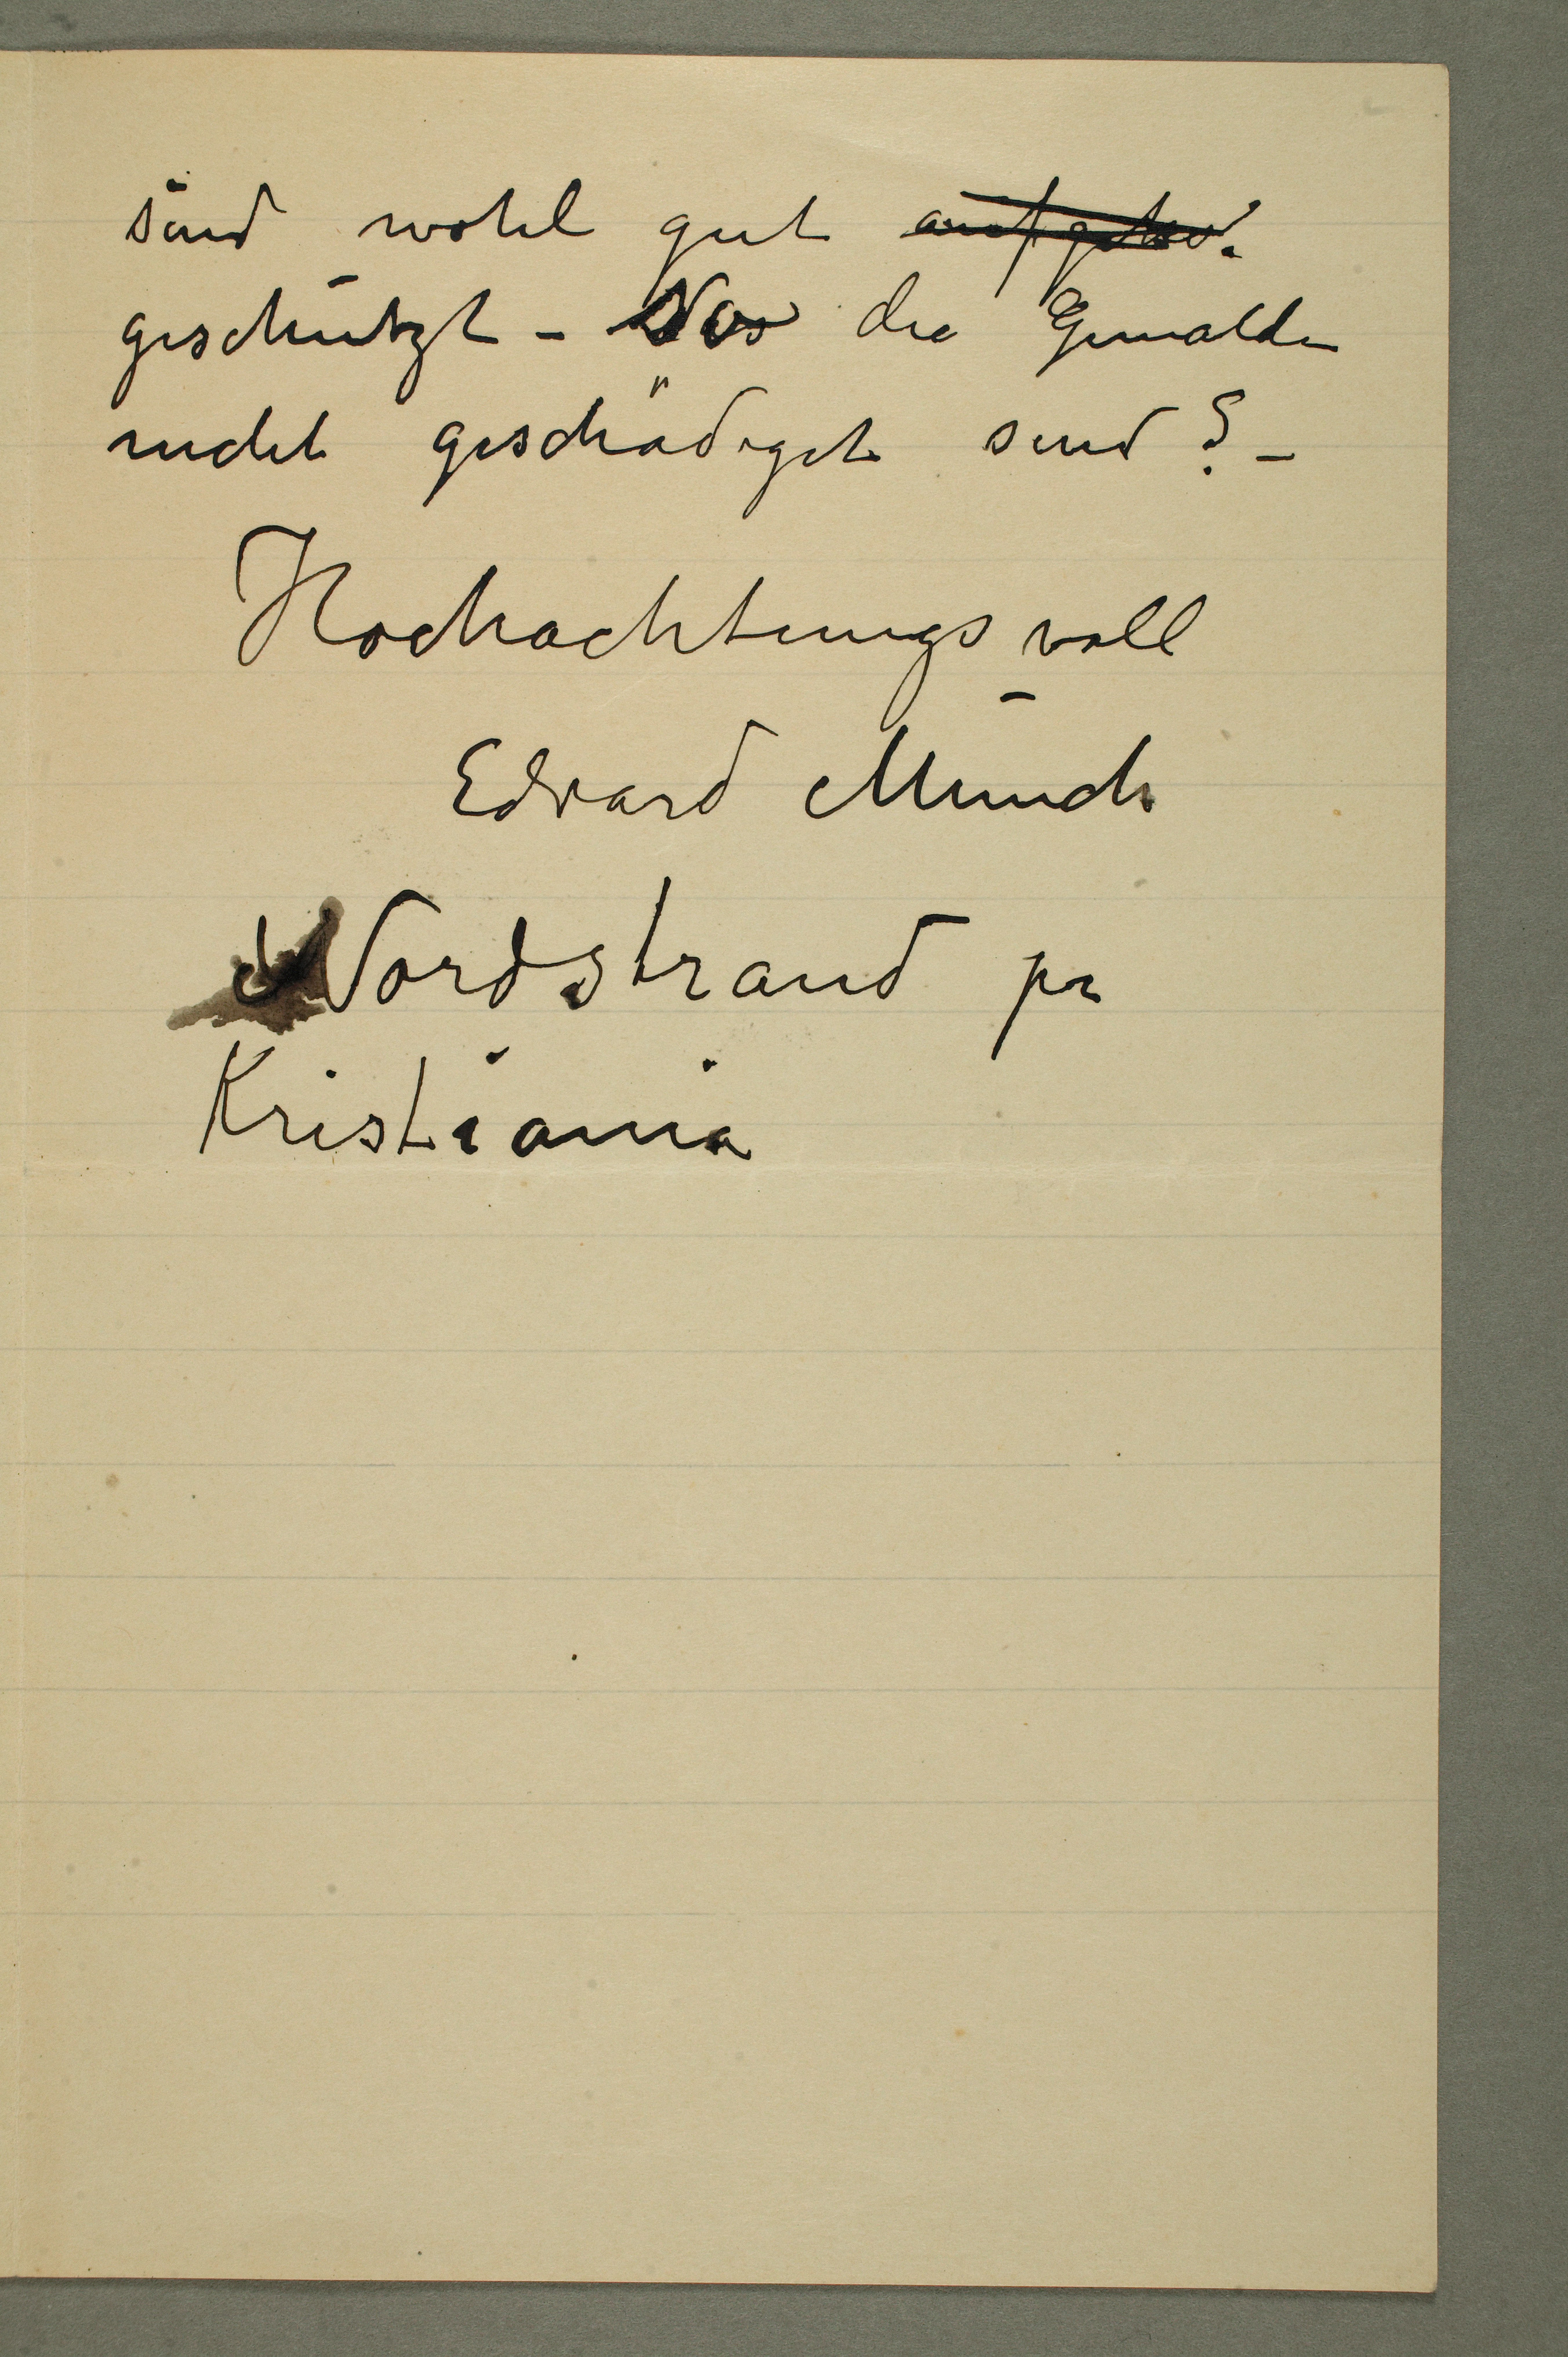 sind wohl gut
geschützt – Das die Gemälde
nicht geschädigt sind? –
Hochachtungsvoll
Edvard Munch
Nordstrand pr
Kristiania